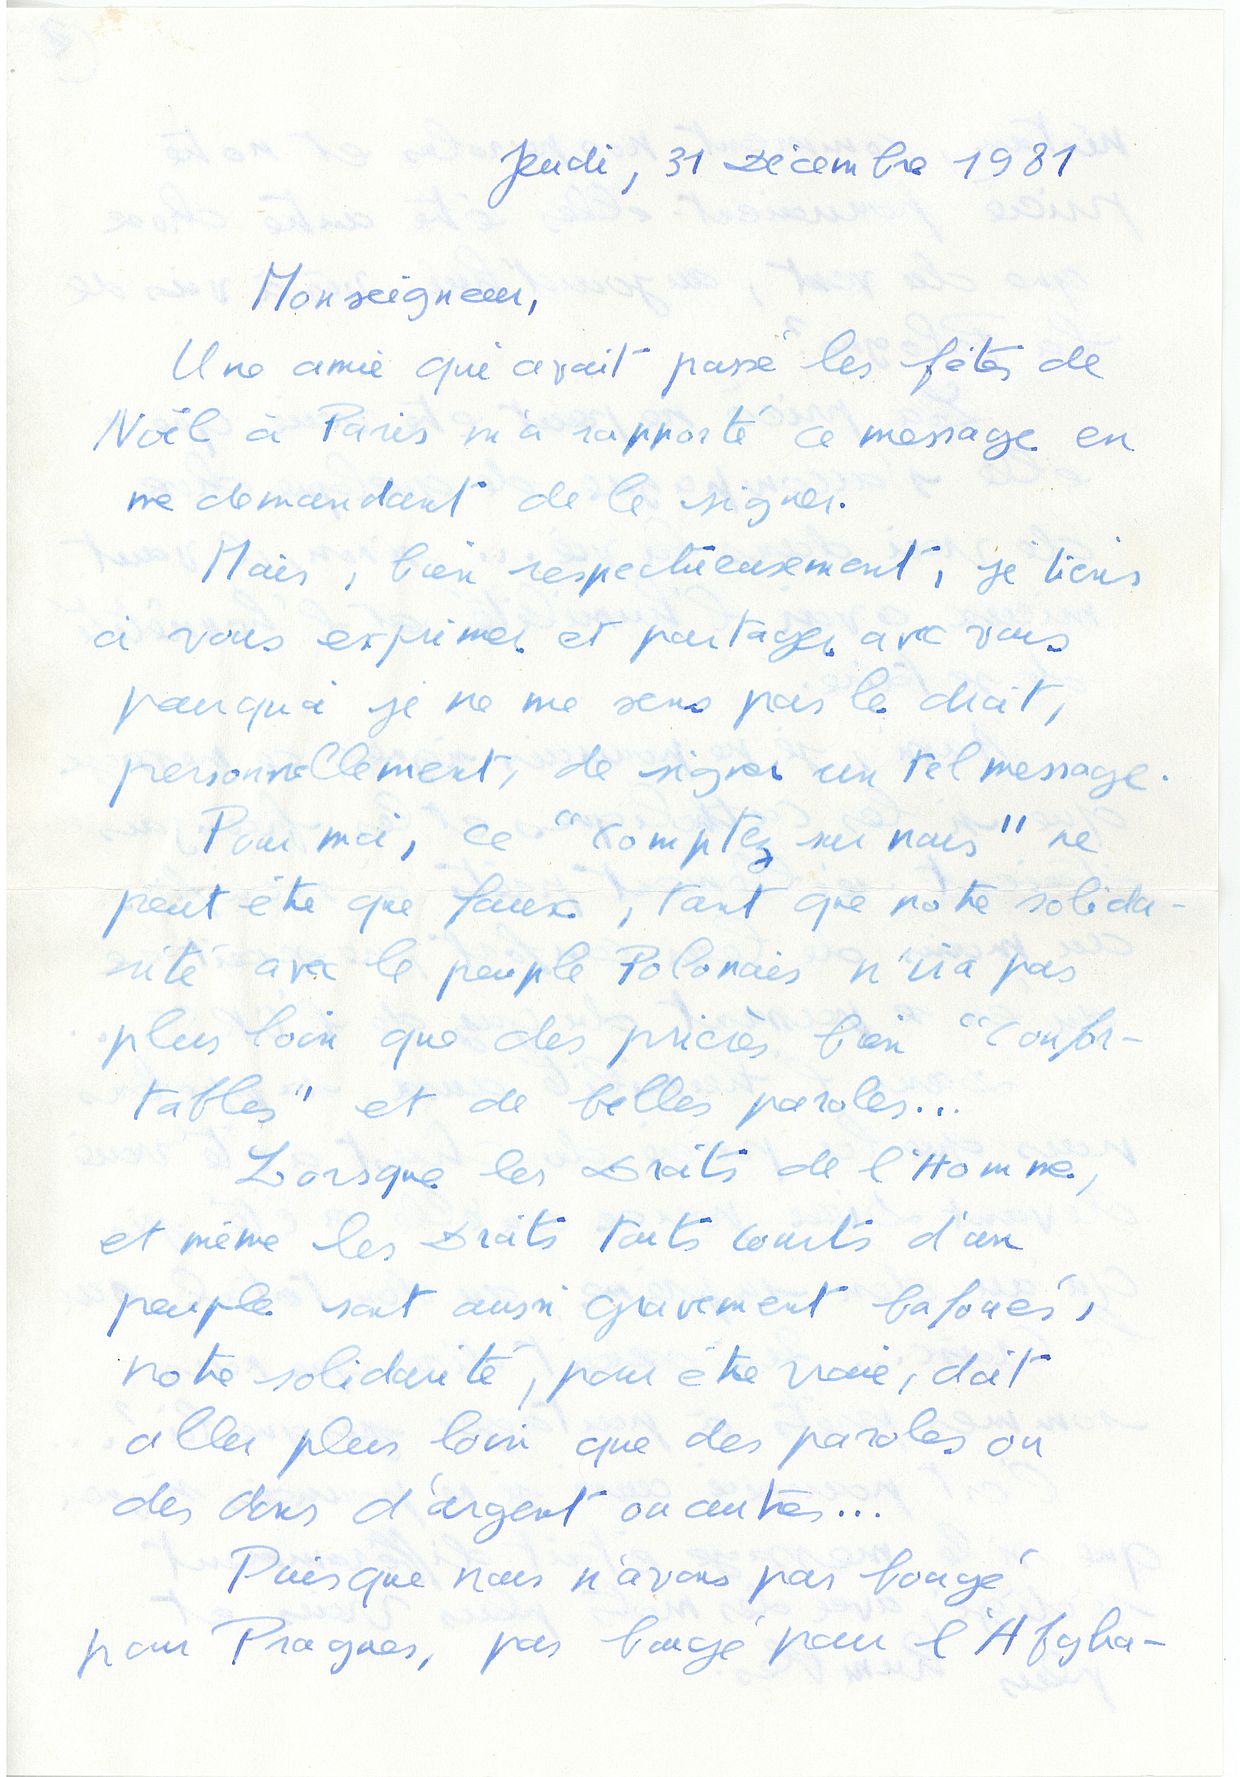 Jeudi, 31 Décembre 1981
Monseigneur,
Une amie qui avait passé les fêtes de
Noël à Paris m'a rapporté ce message en
me demandant de le signer.
Mais, bien respectueusement, je tiens
à vous exprimer et partager avec vous
pourquoi je ne me sens pas le droit,
personnellement, de signer un tel message.
Pour moi, ce "comptez sur nous" ne
peut être que faux, tant que notre solida-
rité avec le peuple Polonais n'ira pas
plus loin que des prières bien "confor-
tables" et de belles paroles...
Lorsque les Droits de l'Homme,
et même les Droits touts courts d'un
peuple sont aussi gravement bafoués,
notre solidarité, pour être vraie, doit
aller plus loin que des paroles ou
des dons d'argent ou autres...
Puisque nous n'avons pas bougé
pour Pragues, pas bougé pour l'Afgha-